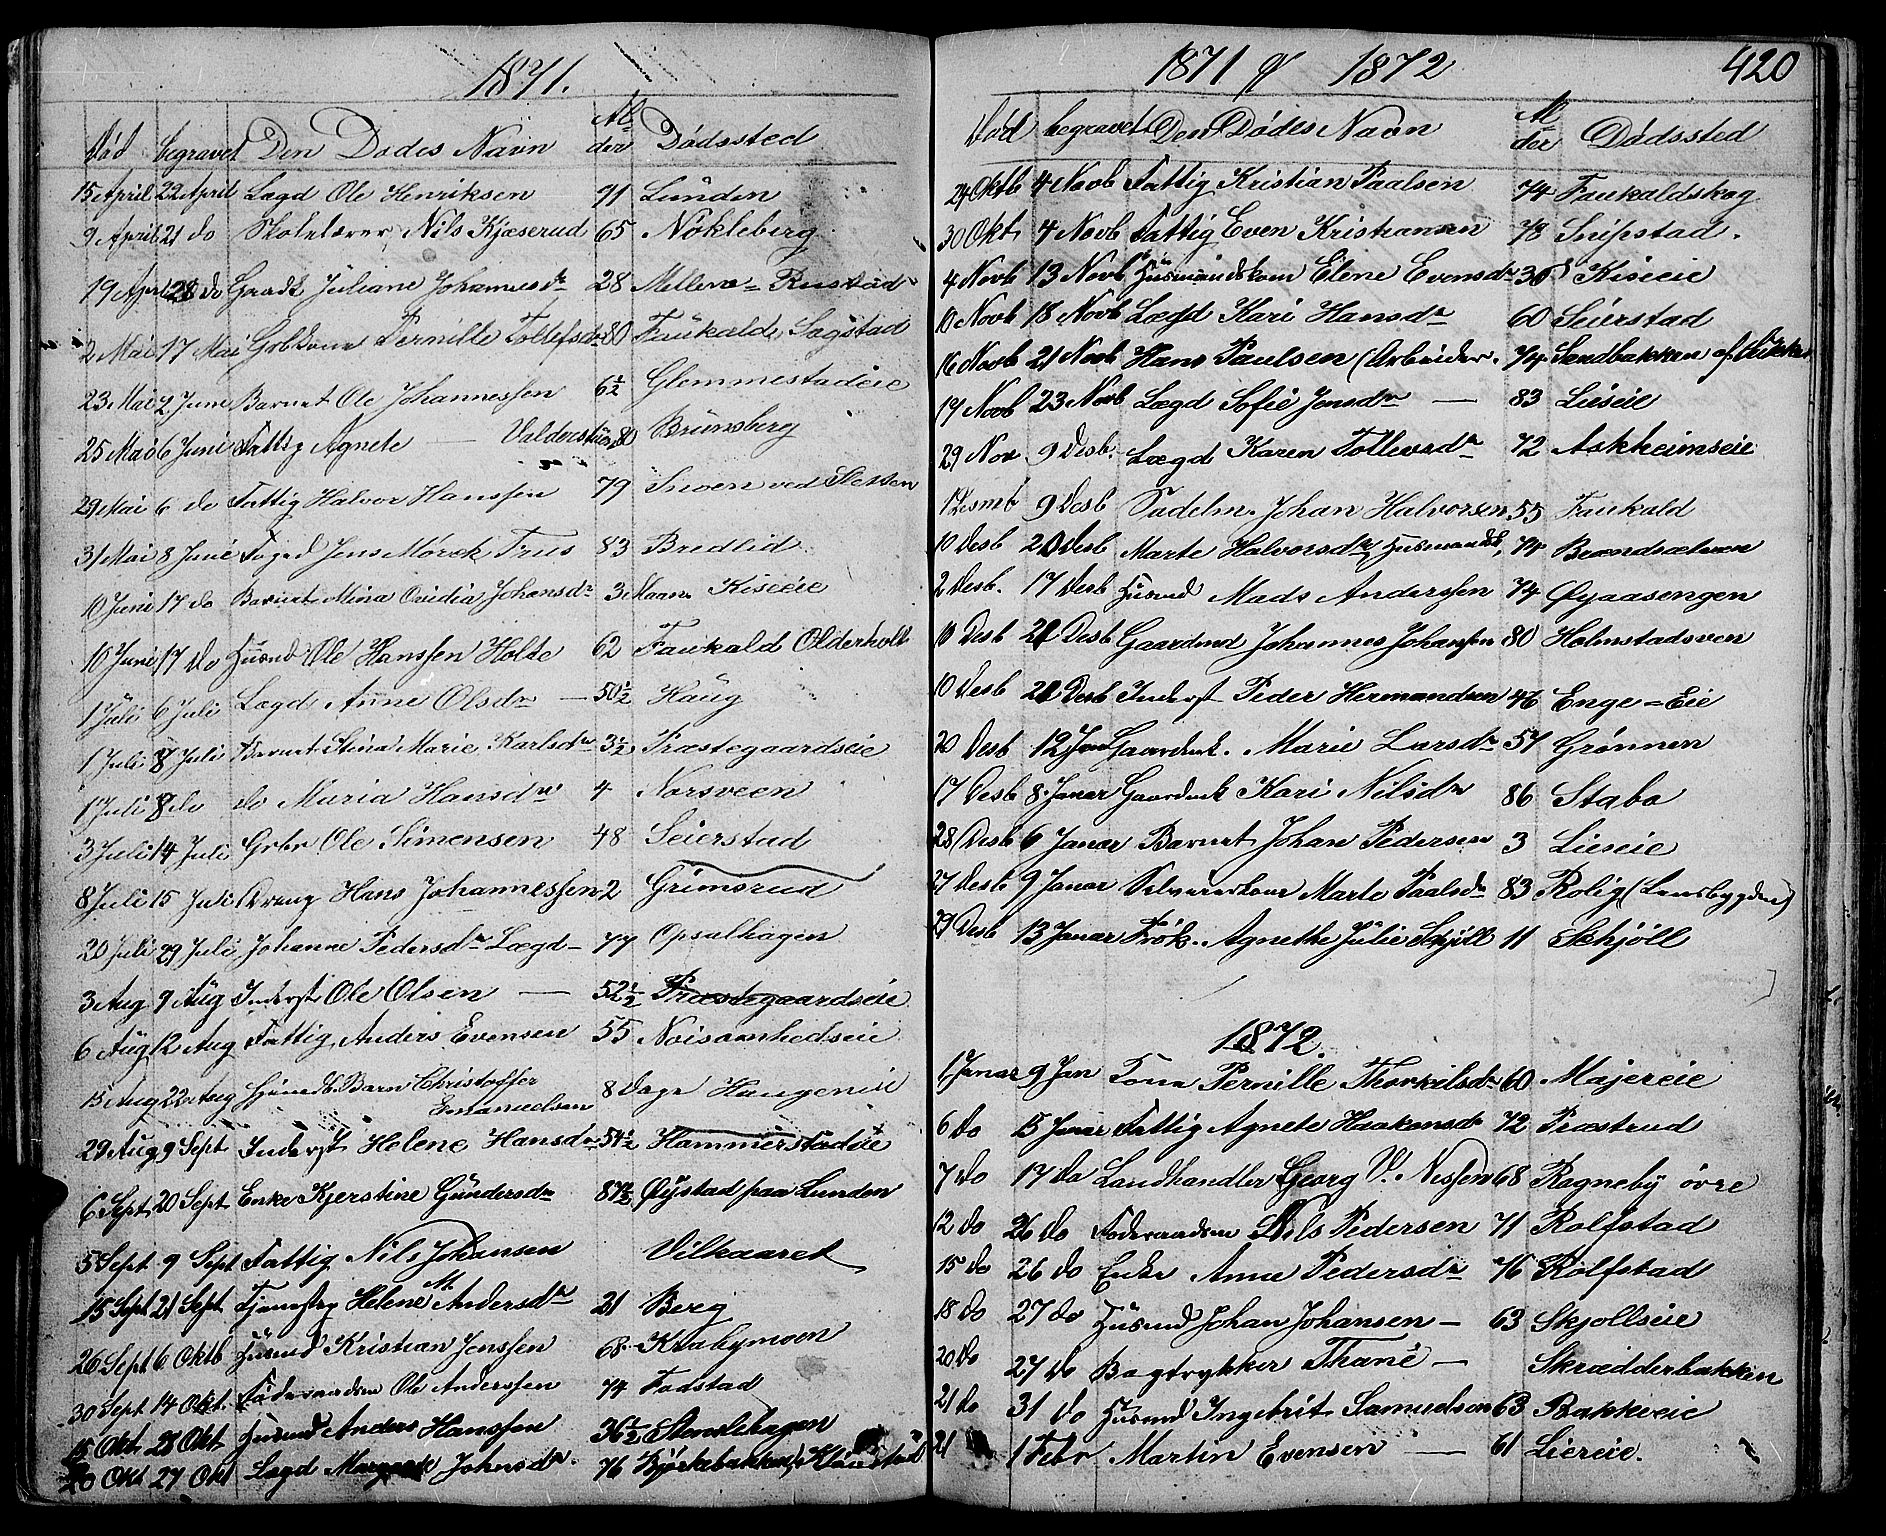 1871.
Død begravet Den Dødes Navn Al
der Dødssted
15 April 22 April Lagd Ole Henriksen 71 Lunden
9 April 21 do Skolelærer Nils Kjæserud 65 Nökleberg
19 Apr 28 do Grædk Juliane Johannesdr 28 Mellem Rustad
2 Mai 17 Mai Gbkone Pernille Tollefsdr 80 Faukald Sagstad
23 Mai 2 Juni Barnet Ole Johannessen 6½ Glemmestadeie
25 Mai 6 Juni Fattig Agnete — 80 Brünsberg
29 Mai 6 do Fattig Halvor Hanssen 79 Snoen ved Sletten
31 Mai 8 Juni Foged Jens Mörck Trus 83 Bredlid
10 Juni 17 do Barnet Mina Ovidia Johansdr 3 Maan Kiseeie
10 Juni 17 do Husmd Ole Hanssen Holte 62 Faukald Olderholt
1 Juli 6 Juli Lagd Anne Olsdr — 50½ Haug
1 Juli 8 Juli Barnet Stina Marie Karlsdr 3½ Præstegaardseie
1 Juli 8 do do Maria Hansdr 4 Norsveen
3 Juli 14 Juli Grbr Ole Simensen 48 Seierstad
8 Juli 15 Juli Dreng Hans Johannessen 2 Grimsrud
20 Juli 29 Juli Johanne Pedersdr Lægd 77 Opsalhagen
3 Aug 9 Aug Inderst Ole Olsen — 52½ Præstegaardseie
6 Aug 12 Aug Fattig Anders Evensen 55 Noisomhedseie
15 Aug 22 Aug Barn Christoffer
Emanuelsen 8 Dage Haugeneie
29 Aug 9 Sept Inderst Helene Hansdr 54½ Hammerstadeie
6 Sept 20 Sept Enke Kjerstine Gundersdr 87½ Øistad paa Lunden
5 Sept 9 Sept Fattig Nils Johansen Vilkaaret
15 Sept 21 Sept Helene M Andersdr 21 Berg
26 Sept 6 Oktb Husmd Kristian Jenssen 68 Krabymoen
30 Sept 14 Okt Föderaadsm Ole Anderssen 74 Fodstad
15 Okt 28 Okt Husmd Anders Hanssen 36½
20 Okt 27 Okt Lagd Johnsdr. 76
1871 og 1872 420
Død begravet Den Dødes Navn Al
der Dødssted
24 Oktb 4 Novb Fattig Kristian Paalsen 74 Faukaldskog
30 Okt 4 Novb Fattig Even Kristiansen 78 Snipstad.
4 Novb 13 Novb Husmandskone Elene Evensdr 36 Kiseeie
10 Novb 18 Novb Lægd Kari Hansdr 60 Seierstad
16 Novb 21 Novb Hans Paulsen (Arbeider. 74 Sandbakken af
17 Novb 23 Novb Lægd Sofie Jonsdr — 83 Lieseie
29 Nov 9 Desb. Lægd Karen Tollevsdr 72 Askheimseie
1 Desmb 9 Desb Sadelm. Johan Halvorsen 55 Faukald
10 Desb 20 Desb Marte Halvorsdr, Husmandsk, 74 Brændsætveen
2 Desb. 17 Desb Husmd Mads Anderssen 74 Øyaasengen
10 Desb 21 Desb Gaardmd Johannes Johansen 80 Holmstadsven
10 Desb 21 Desb Inderst Peder Hermandsen 46 Enge=Eie
20 Desb 12 Jan Gaardmk. Marie Larsdr 57 Grønnen
17 Desb 8 Januar Gaardmk Kari Nilsdr 86 Stabo
28 Desb 6 Januar Barnet Johan Pedersen 3 Lieseie
27 Desb 9 Januar Selveierkone Marte Paalsdr 83 Rolig (Lensbygden)
29 Desb 13 Januar Frök. Agnethe Julie Skjöll 11 Skhjöll
1872.
1 Januar 9 Jan Kone Pernille Thorkilsdr 60 Majereie
6 do 15 Januar Fattig Agnete Haakonsdr 72 Præstrud
7 do 17 do Landhandler Georg V. Nissen 68 Ragneby övre
12 do 26 do Föderaadsm Nils Pedersen 71 Rolfstad
15 do 26 do Enke Anne Pedersdr 76 Rolfstad
18 do 27 do Husmd Johan Johansen — 63 Skjollseie
20 do 27 do Bogtrykker Thane — Skrædderbakken
21 do 31 do Husmd Ingebrit Samuelsen 63 Bakkeeie
21 1 Febr Martin Evensen — 61 Liereie.